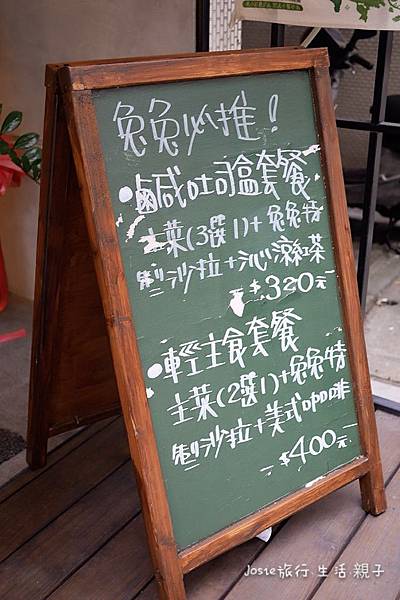 兔兔必推！
•鹹吐司盒套餐
主菜(3選1)+兔兔特
製沙拉+沁涼紅茶
$.320元
•輕主食套餐
主菜(2選1)+兔兔特
製沙拉+美式咖啡
-$400元
Josie旅行.生活.親子